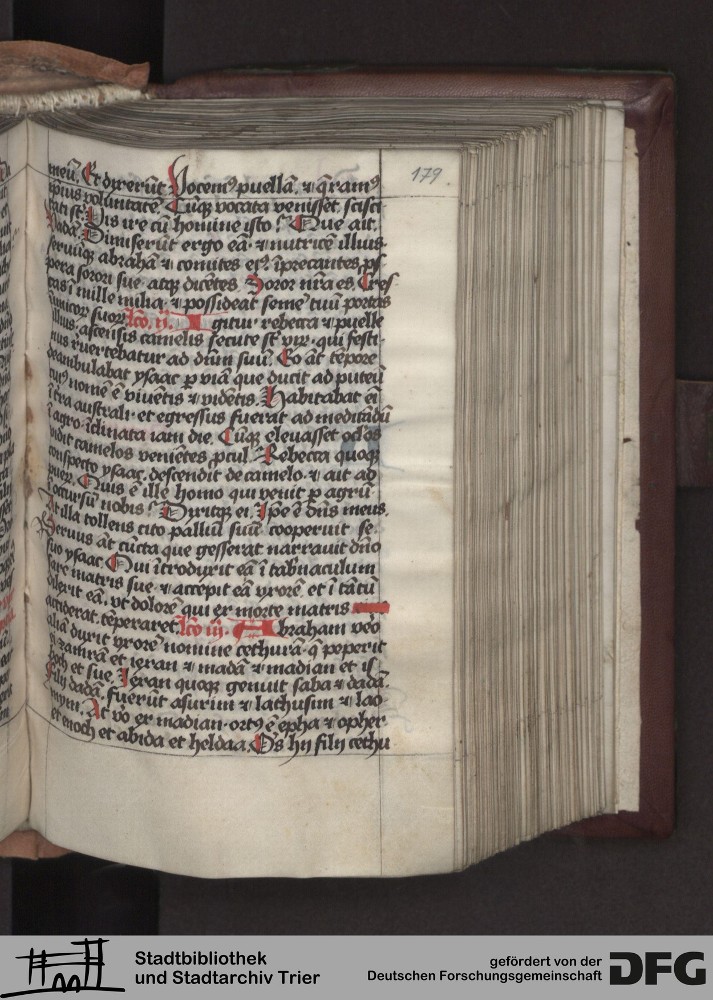 179
meū. Et dixerūt Vocemꝰ puellā. ⁊ q̄ramꝰ
ipius voluntatē. Cūqꝫ vocata venisset. scisci
tati st̄. Vis ire cū homine isto? Que ait.
Vadā. Dimiserūt ergo eā. ⁊ nutricē illius.
seruūqꝫ abrahā ⁊ comites eiꝰ. īprecantes ꝓs
pera sorori sue. atqꝫ dicētes. Soror nr̄a es. Cres
cas ī mille milia. ⁊ possideat semē tuū portas
īimicoꝝ suoꝝ. lc̄o. ii. Igitur rebecca ⁊ puelle
illius. ascensis camelis secute st̄ viꝝ. qui festi
nus reuertebatur ad dn̄m suū. Eo āt tēpore
deambulabat ysaac ꝑ viā que ducit ad puteū
cuiꝰ nomē ē viuētis ⁊ vidētis. Habitabat eī
ī tra australi. et egressus fuerat ad meditādū
ī agro. īclinata iam die. Cūqꝫ eleuasset oc̄los
vidit camelos veniētes ꝓcul. Rebecca quoqꝫ
conspecto ysaac. descendit de camelo. ⁊ ait ad
pueꝝ. Quis ē ille homo qui venit ꝑ agrū
ī occursū nobis? Dixitqꝫ ei. Ipe ē dn̄s meus.
At illa tollens cito palliū suū cooperuit se.
Seruus āt cūcta que gesserat narrauit dn̄o
suo ysaac. Qui ītroduxit eā ī tab̄naculum
sare matris sue. ⁊ accepit eā vxorē. et ī tātū
dilexit eā. vt dolorē qui ex morte matris
acciderat. tēperaret. lc̄o iii. Abraham v̄o
aliā duxit vxorē nomine cethurā. q̄ peperit
ei zamrā et iexan ⁊ madā ⁊ madian et is
boch et sue. Iexan quoqꝫ genuit saba ⁊ dadā.
Filii dadā. fuerūt asurim ⁊ lathusim ⁊ lao
mym. At v̄o ex madian. ortꝰ ē epha ⁊ opher
et enoch et abida et heldaa. Om̄s hii filii cethu
Stadtbibliothek
und Stadtarchiv Trier
gefördert von der
Deutschen Forschungsgemeinschaft
DFG